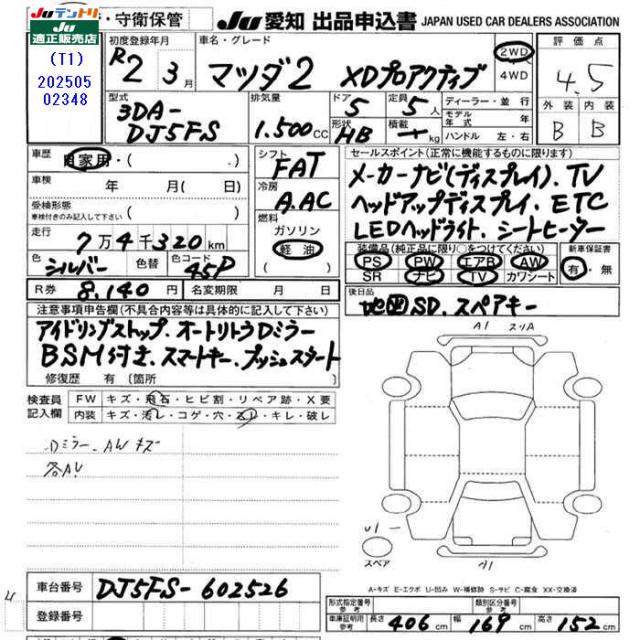 Juテントリ
Ju
適正販売店
・守衛保管
Ju 愛知 出品申込書 JAPAN USED CAR DEALERS ASSOCIATION
(T1)
202505
02348
初度登録年月
R2 3月
車名・グレード
マツダ2 XDプロアクティブ
2WD
4WD
評価点
4.5
型式
3DA-
DJ5FS
排気量
1.500cc
ドア
5
定員
5人
形状
HB
積載
kg
ディーラー・並行
モデル年式 年
ハンドル 左・右
外装 内装
B B
車歴
自家用・( )
車検
年 月( 日)
受検形態
車検付きのみ記入して下さい
走行
7万4千320km
色
シルバー
色替
色コード
45P
シフト
FAT
冷房
A.AC
燃料
ガソリン
軽油
セールスポイント(正常に機能するものに限ります)
メーカーナビ(ディスプレイ). TV
ヘッドアップディスプレイ. ETC
LEDヘッドライト. シートヒーター
装備品(純正品に限り○をつけてください)
PS PW エアB AW
SR ナビ TV カワシート
新車保証書
有・無
R券 8.140円
名変期限 月 日
後日品
地図SD. スペアキー
注意事項申告欄(不具合内容等は具体的に記入して下さい)
アイドリングストップ. オートリトラDミラー
BSM付き. スマートキー. プッシュスタート
修復歴 有 〔箇所
検査員
記入欄
FW キズ・飛石・ヒビ割・リペア跡・X要
内装 キズ・汚レ・コゲ・穴・スレ・キレ・破レ
Dミラー. AW キズ
各A1
A1 スリA
U1
スペア
A1
車台番号 DJ5FS-602526
登録番号
A-キズ E-エクボ U-凹み W-補修跡 S-サビ C-腐食 XX-交換済
形式指定番号
参考
類別区分番号
参考
車庫証明用
参考
長さ 406cm 幅 169cm 高さ 152cm